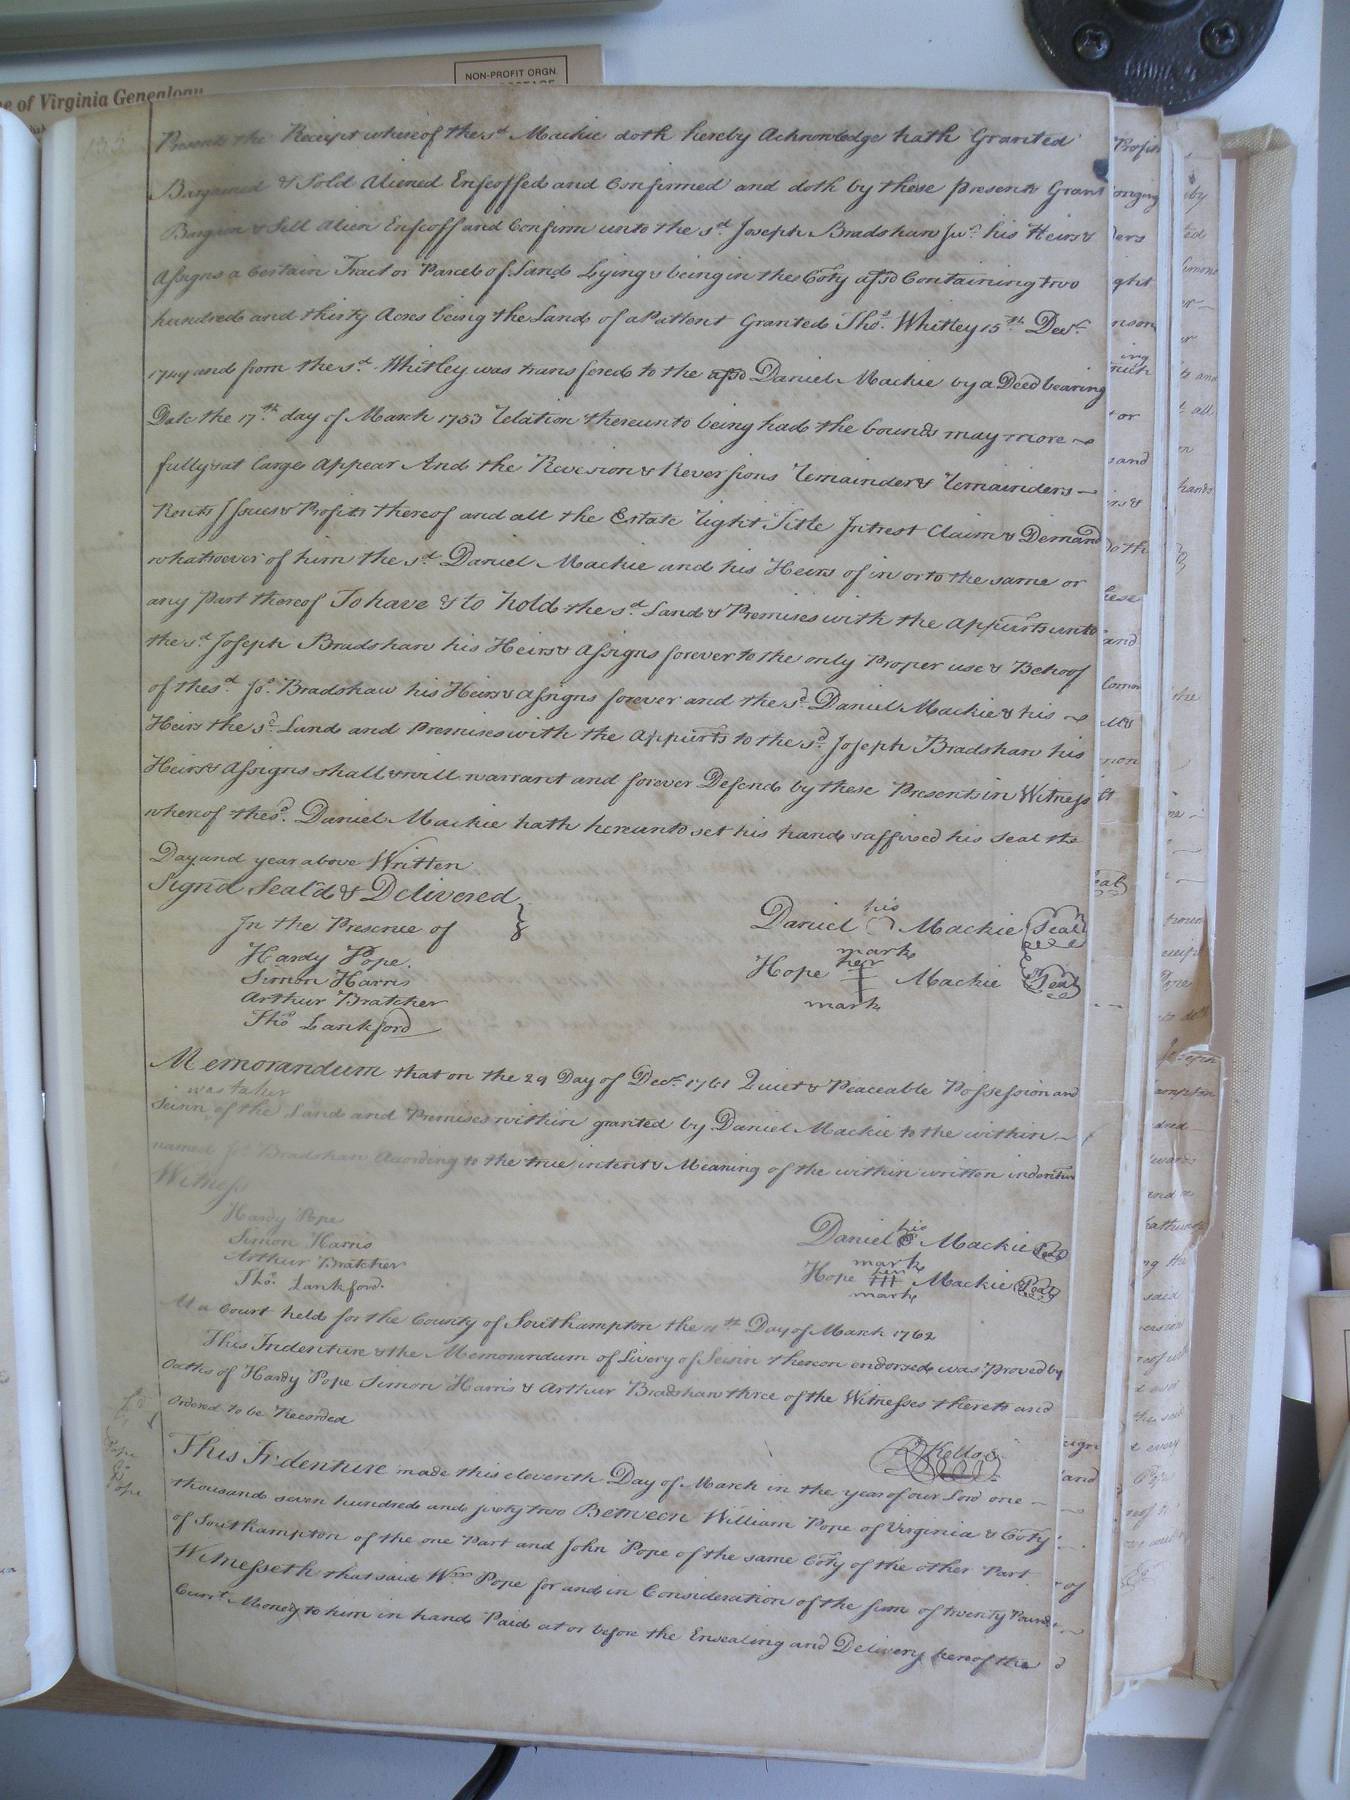 NON-PROFIT ORGN.
e of Virginia Genealogy
Presents the Receipt whereof the sd Mackie doth hereby Acknowledge hath Granted
Bargained & Sold Aliened Enfeoffed and Confirmed and doth by these presents Grant
Bargain & Sell Alien Enfeoff and Confirm unto the sd Joseph Bradshaw Junr his Heirs &
Assigns a Certain Tract or Parcel of Land Lying & being in the Coty afsd Containing two
hundred and thirty Acres being the Land of a Pattent Granted Thos Whitley 15th Decr
1749 and from the sd Whitley was transfered to the afsd Daniel Mackie by a Deed bearing
Date the 17th day of March 1753 relation thereunto being had the bounds may more
fully & at large Appear And the Revesion & Reversions remainder & remainders
Rents Issues & Profits thereof and all the Estate right Title Intrest Claim & Demand
whatsoever of him the sd Daniel Mackie and his Heirs of in or to the same or
any Part thereof To have & to hold the sd Land & Premises with the Appurts unto
the sd Joseph Bradshaw his Heirs & Assigns forever to the only Proper use & Behoof
of the sd Jos Bradshaw his Heirs & Assigns forever and the sd Daniel Mackie & his
Heirs the sd Land and Premises with the Appurts to the sd Joseph Bradshaw his
Heirs & Assigns shall & will warrant and forever Defend by these Presents in Witness
whereof the sd Daniel Mackie hath hereunto set his hand & affixed his Seal the
Day and year above Written
Signd Seald & Delivered
In the Presence of
Hardy Pope
Simon Harris
Arthur Bratcher
Thos Lankford
his
Daniel Mackie Seal
mark
her
Hope Mackie Seal
mark
Memorandum that on the 29 Day of Decr 1761 Quiet & Peaceable Possession and
was taken
Seisin of the Land and Premises within granted by Daniel Mackie to the within
named Jos Bradshaw According to the true intent & Meaning of the within written indenture
Witness
Hardy Pope
Simon Harris
Arthur Bratcher
Thos Lankford
his
Daniel Mackie Seal
mark
her
Hope Mackie Seal
mark
At a Court held for the County of Southampton the 11th Day of March 1762
This Indenture & the Memorandum of Livery of Seisin thereon endorsed was Proved by
Oaths of Hardy Pope Simon Harris & Arthur Bradshaw three of the Witnesses thereto and
Ordered to be Recorded
R Kello
Pope
To
Pope
This Indenture made this eleventh Day of March in the year of our Lord one
thousand seven hundred and sixty two Between William Pope of Virginia & Coty
of Southampton of the one Part and John Pope of the same Coty of the other Part
Witnesseth that said Wm Pope for and in Consideration of the sum of twenty Pounds
Currt Money to him in hand Paid at or before the Ensealing and Delivery hereof the